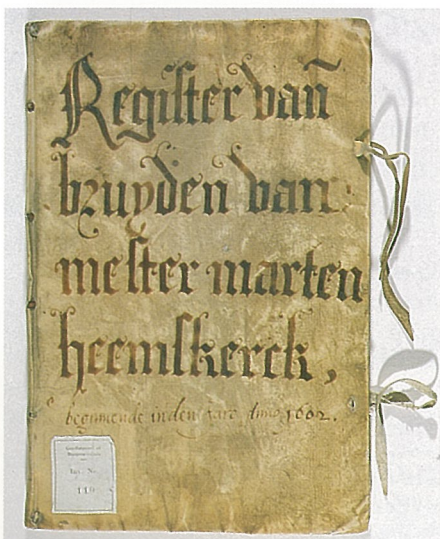 Register vañ
bruyden van
mester marten
heemskerck,
beginnende inden Jare Anno 1602.
Inv. No.
110